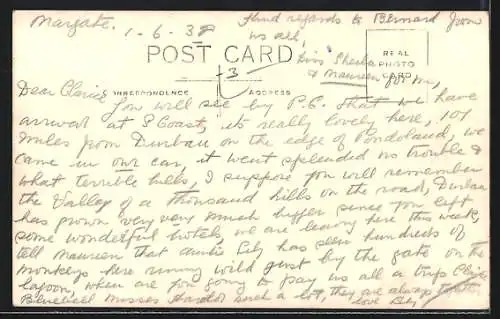 Margate. 1-6-38
Kind regards to Bernard from
us all,
POST CARD
REAL
PHOTO
CARD
-3-
Kiss Sheila
& Maureen for me,
CORRESPONDENCE ADDRESS
Dear Claire
You will see by P.C. that we have
arrived at S Coast, its really lovely here, 101
miles from Durban on the edge of Pondoland, we
came in our car, it went splendid no trouble &
what terrible hills, I suppose you will remember
the Valley of a thousand hills on the road, Durban
has grown very very much bigger since you left
some wonderful hotels, we are leaving here this week,
tell Maureen that auntie Lily has seen hundreds of
monkeys here running wild just by the gate on the
lagoon, when are you going to pay us all a trip Claire
misses such a lot, they are always together
love Lily